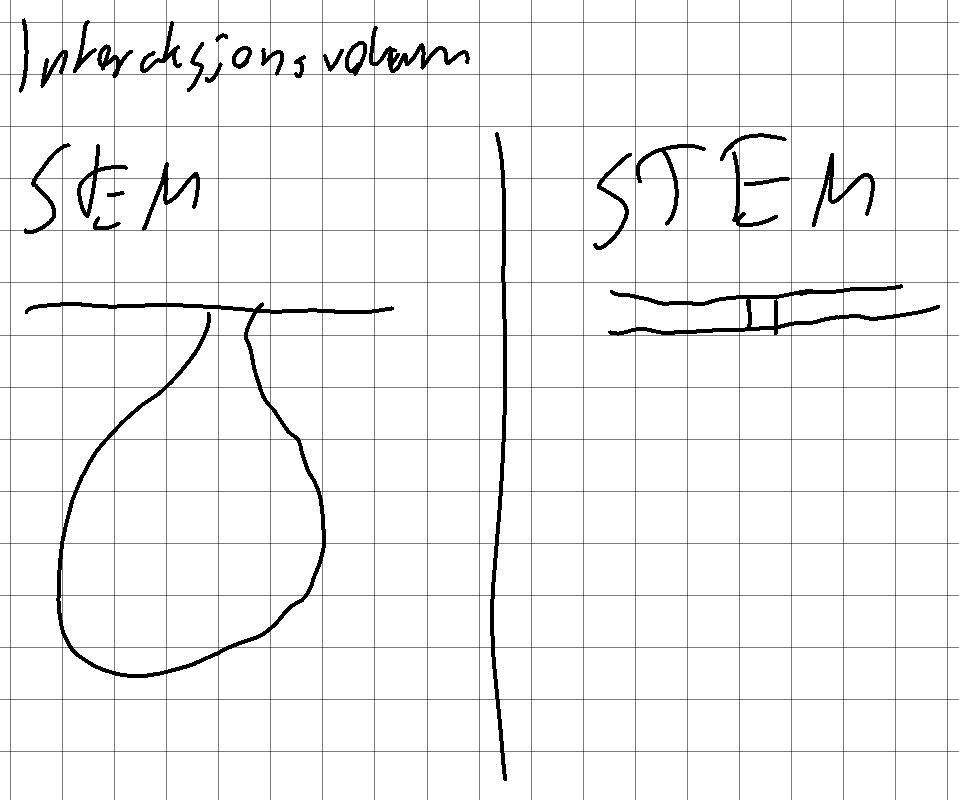 Interaksjonsvolum
SEM
STEM